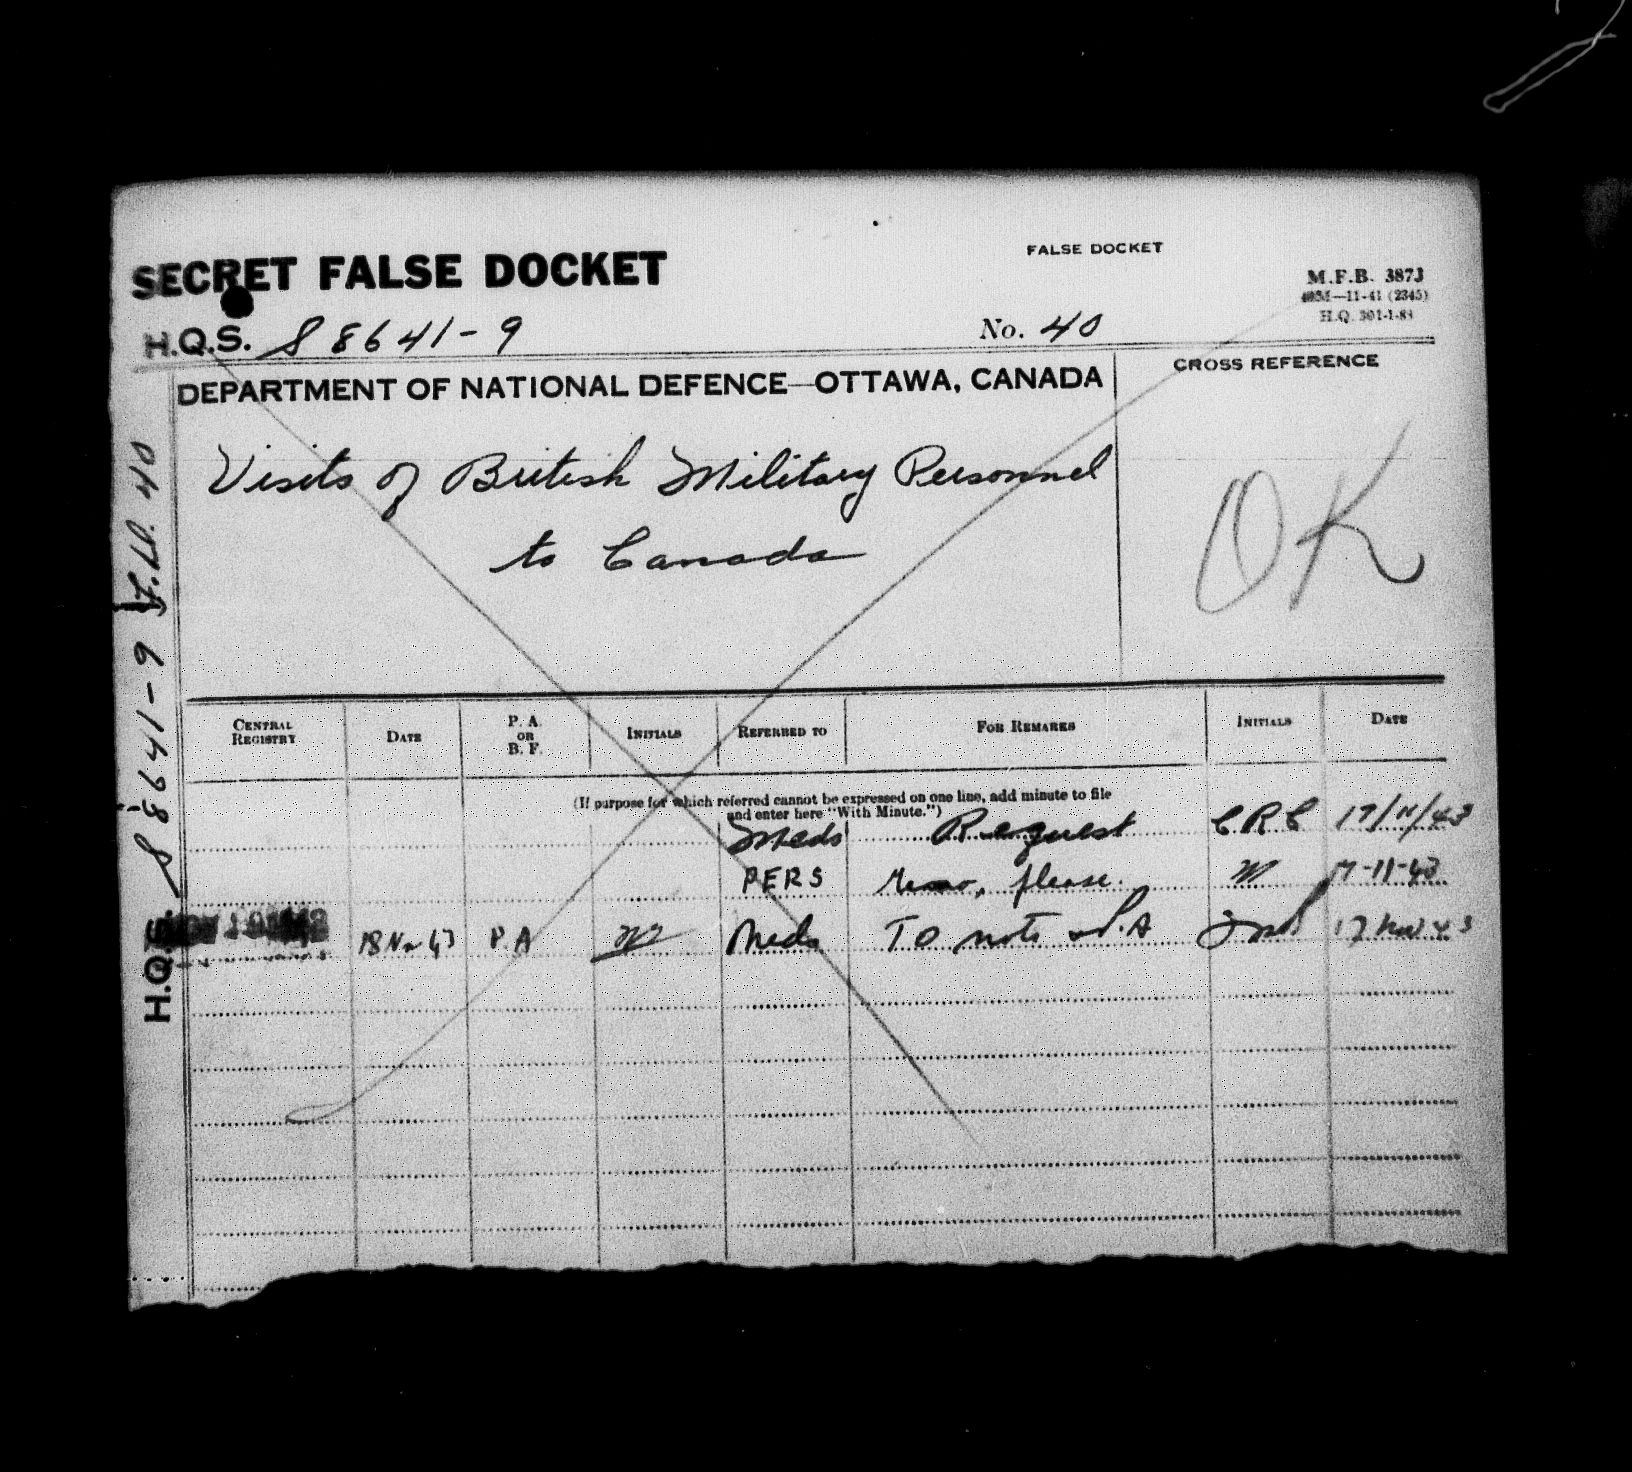 FALSE DOCKET
SECRET FALSE DOCKET
M.F.B. 387J
(2345)
H.Q.S. S 8641-9 No. 40
DEPARTMENT OF NATIONAL DEFENCE—OTTAWA, CANADA
CROSS REFERENCE
Visits of British Military Personnel
to Canada
OK
CENTRAL REGISTRY DATE P. A. OR B. F. INITIALS REFERRED TO FOR REMARKS INITIALS DATE
(If purpose for which referred cannot be expressed on one line, add minute to file
and enter here "With Minute.")
Meds Request CRC 17/11/43
PERS Memo, please. 17-11-43
18 Nov 43 P A Meds To note & P.A 17 Nov 43
H.Q.S. S 8641-9 F.D. 40